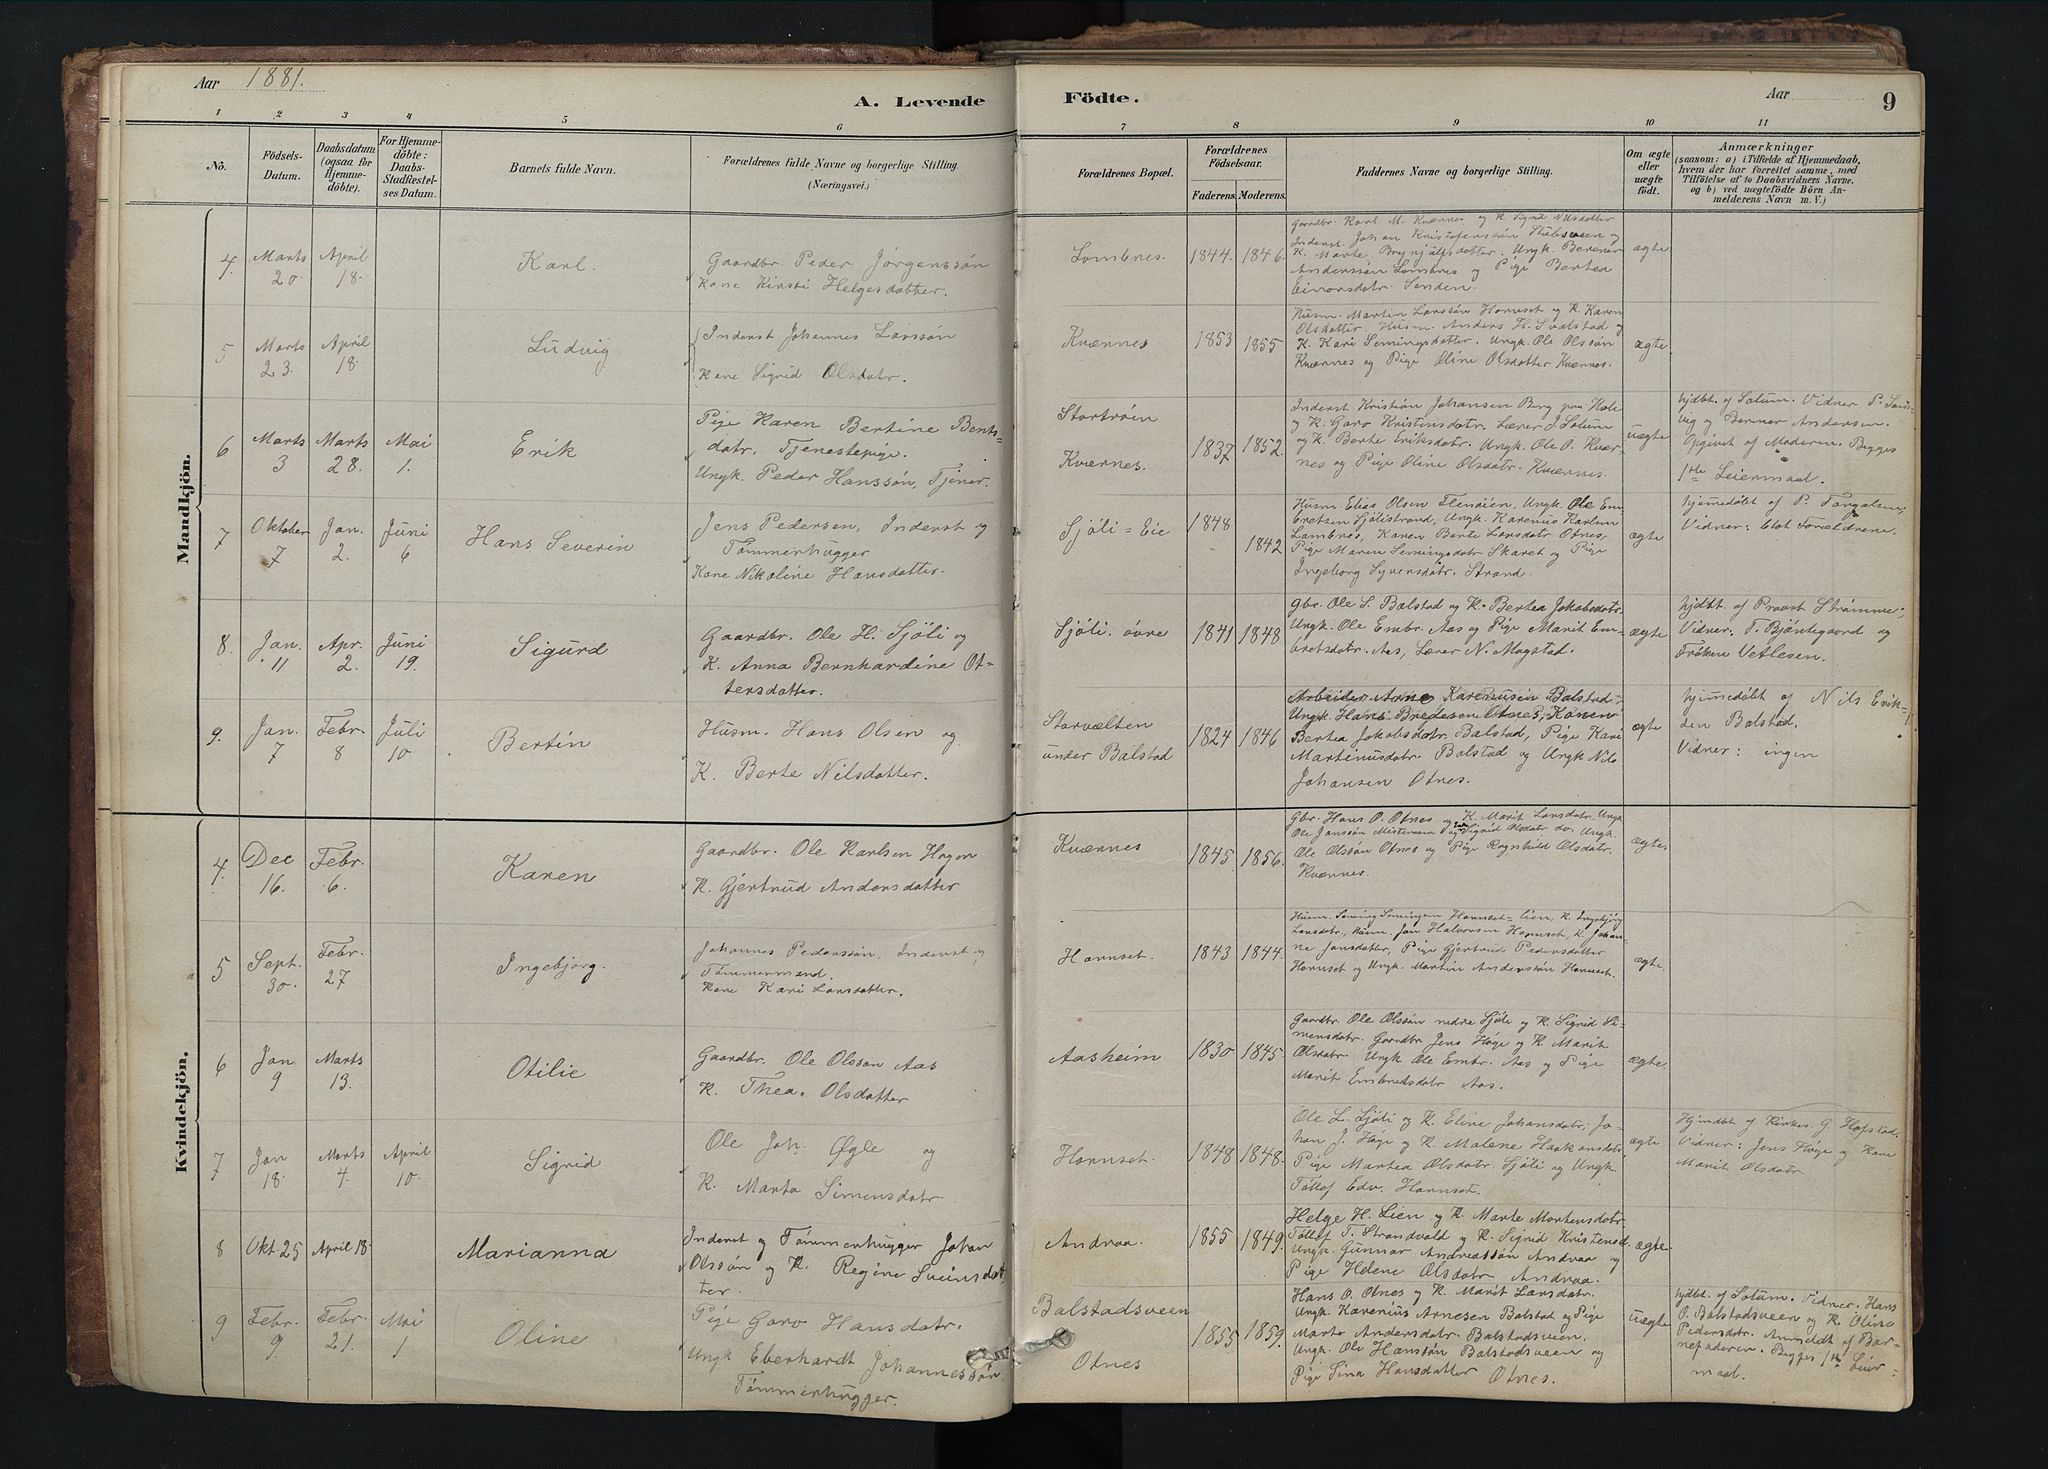 Aar 1881.
A. Levende Födte.
Aar
9
1 2 3 4 5 6 7 8 9 10 11
No.
Födsels-Datum.
Daabsdatum (ogsaa for Hjemmedöbte).
For Hjemmedöbte: Daabs-Stadfestelses Datum.
Barnets fulde Navn.
Forældrenes fulde Navne og borgerlige Stilling.
(Næringsvei.)
Forældrenes Bopæl.
Forældrenes Födselsaar.
Faderens. Moderens.
Faddernes Navne og borgerlige Stilling.
Om ægte eller uægte födt.
Anmærkninger
(saasom: a) i Tilfælde af Hjemmedaab, hvem der har forrettet samme, med Tilföielse af to Daabsvidners Navne, og b) ved uægtefödte Börn Anmelderens Navn m. V.)
Mandkjön.
4. Marts 20 April 18. Karl. Gaardbr. Peder Jörgenssön
Kone Kirsti Helgesdatter.
Lombnes. 1844. 1846.
Gaardbr. Karl M. Kværnes og K. Sigrid Nilsdatter
Inderst. Johan Kristofenssön Stubsveen og
K. Marte Brynjulfsdatter. Ungk. Berener
Anderssön Lombnes og Pige Bertea
Einarsdatr. Sanden.
ægte
5 Marts 23. April 18. Ludvig Inderst Johannes Larssön
Kone Sigrid Olsdatr.
Kværnes 1853 1855
Husm. Martin Larssön Hornset og K. Karen
Olsdatter. Husm. Anders H. Svalstad og
K. Kari Semingsdatter. Ungk. Ole Olssön
Kværnes og Pige Oline Olsdatter Kværnes.
ægte.
6 Marts 3 Marts 28. Mai 1. Erik Pige Karen Bertine Bents-
datr. Tjenestepige.
Ungk. Peder Hanssön, Tjener.
Stortröen
Kværnes. 1837 1852.
Inderst Kristian Johansen Berg paa Hole
og K. Garo Kristensdatr. Lærer J. Solum
og K. Berte Eriksdatr. Ungk. Ole O. Kvær-
nes og Pige Oline Olsdatr. Kværnes.
uægte
hjdbt. af Solum. Vidner P. Sand-
vig og Berner Andersen.
Opgivet af Moderen. Begges
1ste Leiermaal.
7 Oktober 7 Jan. 2. Juni 6 Hans Severin Jens Pedersen, Inderst og
Tömmerhugger
Kone Nikoline Hansdatter.
Sjöli = Eie 1848 1842
Husm. Elias Olsen Flenöien, Ungk. Ole Em-
bretsen Sjölistrand, Ungk. Karenus Karlsen
Lombnes, Konen Berte Larsdatr Otnes,
Pige Maren Semingsdatr. Skaret og Pige
Ingeborg Syversdatr. Strand.
ægte
hjemmedöbt af P. Torgalsen;
Vidner: Blot Forældrene.
8. Jan. 11 Apr. 2. Juni 19. Sigurd Gaardbr. Ole H. Sjöli og
K. Anna Bernhardine Ot-
tersdatter.
Sjöli. övre 1841 1848
Gbr. Ole S. Balstad og K. Bertea Jakobsdatr.
Ungk. Ole Embr. Aas og Pige Marit Em-
bretsdatr. Aas, Lærer N. Magstad.
ægte
hjdbt. af Provst Strömme;
Vidner: T. Bjöntegaard og
Fröken Vetlesen.
9. Jan. 7 Febr. 8 Juli 10 Bertin Husm. Hans Olsen og
K. Berte Nilsdatter.
Storvælten
under Balstad 1824 1846
Arbeider Arne Karenusen Balstad.
Ungk. Hans Bredesen Otnes, Konen
Bertea Jakobsdatr. Balstad, Pige Kari
Martinusdatr. Balstad og Ungk Nils
Johansen Otnes.
ægte
hjemmedöbt af Nils Erik-
sen Balstad.
Vidner: ingen
Kvindekjön.
4. Dec 16. Febr. 6. Karen Gaardbr. Ole Karlsen Hagen
K. Gjertrud Andersdatter
Kværnes 1845 1856.
Gbr. Hans O. Otnes og K. Marit Larsdatr. Ungk.
Ole Janssön Misterveen og Sigrid Olsdatr do. Ungk.
Ole Olssön Otnes og Pige Ragnhild Olsdatr.
Kværnes.
ægte.
5 Sept. 30. Febr. 27 Ingebjörg. Johannes Pederssön, Inderst og
Tömmermand.
Kone Kari Larsdatter.
Hornset. 1843 1844.
Husm. Seming Semingsen Hornset=lien, K. Ingebjörg
Larsdatr., Husm. Jon Halvorsen Hornset, K. Johan-
ne Jonsdatter, Pige Gjertrud Pedersdatter
Hornset og Ungk. Martin Anderssön Hornset.
ægte.
6 Jan 9 Marts 13. Otilie Gaardbr. Ole Olssön Aas
K. Thea Olsdatter
Aasheim 1830 1845.
Gaardbr. Ole Olssön nedre Sjöli og K. Sigrid Si-
mensdatr. Gaardbr. Jens Höge og K. Marit
Olsdatr. Ungk Ole Embr. Aas og Pige
Marit Embretsdatr Aas.
ægte.
7 Jan 18. Marts 4. April 10. Sigrid Ole Joh. Øgle og
K. Marta Simensdatr.
Hornset. 1848 1848.
Ole L. Sjöli og K. Eline Johansdatr, Jo-
han J. Höge og K. Malene Haakonsdatr,
Pige Martea Olsdatr. Sjöli og Ungk
Töllef Edv. Hornset.
ægte
Hjmdbt af Kirkes. G. Hofstad.
Vidner: Jens Höge og Kone
Marit Olsdatr.
8 Okt. 25 April 18. Marianna Inderst og Tömmerhugger Johan
Olssön og K. Regine Sveinsdat-
ter.
Andraa. 1855 1849.
Helge H. Lien og K. Marte Mortensdatr.
Töllef T. Strandvold og K. Sigrid Kristensd.
Ungk. Gunnar Andreassön Andraa og
Pige Helene Olsdatr Andraa.
ægte
9 Febr. 9 Febr. 21. Mai 1 Oline Pige Garo Hansdatr.
Ungk Eberhardt Johannessön
Tömmerhugger.
Balstadsveen
Otnes 1855 1859.
Hans O. Otnes og K. Marit Larsdatr.
Ungk. Karenius Arnesen Balstad og Pige
Marte Andersdatr. Balstadsveen.
Ungk. Ole Hanssön Balstadsveen og
Pige Sina Hansdatter Otnes.
uægte
hjdbt. af Solum. Vidner: Hans
O. Balstadsveen og K. Oline
Pedersdtr. Anmeldt af Bar-
nefaderen. Begges 1ste Leier-
maal.